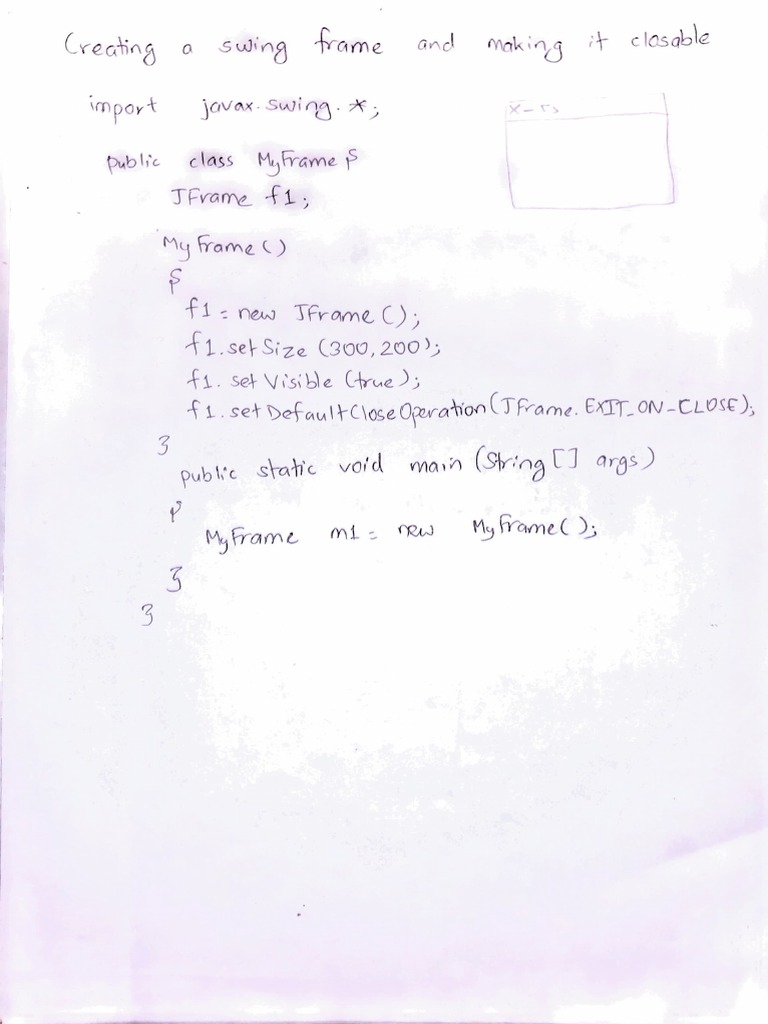 Creating a swing frame and making it closable
import javax.swing.*;
public class MyFrame {
JFrame f1;
MyFrame()
{
f1 = new JFrame();
f1.setSize (300,200);
f1.setVisible (true);
f1.setDefaultCloseOperation(JFrame.EXIT_ON_CLOSE);
}
public static void main (String [] args)
{
MyFrame m1 = new MyFrame();
}
}